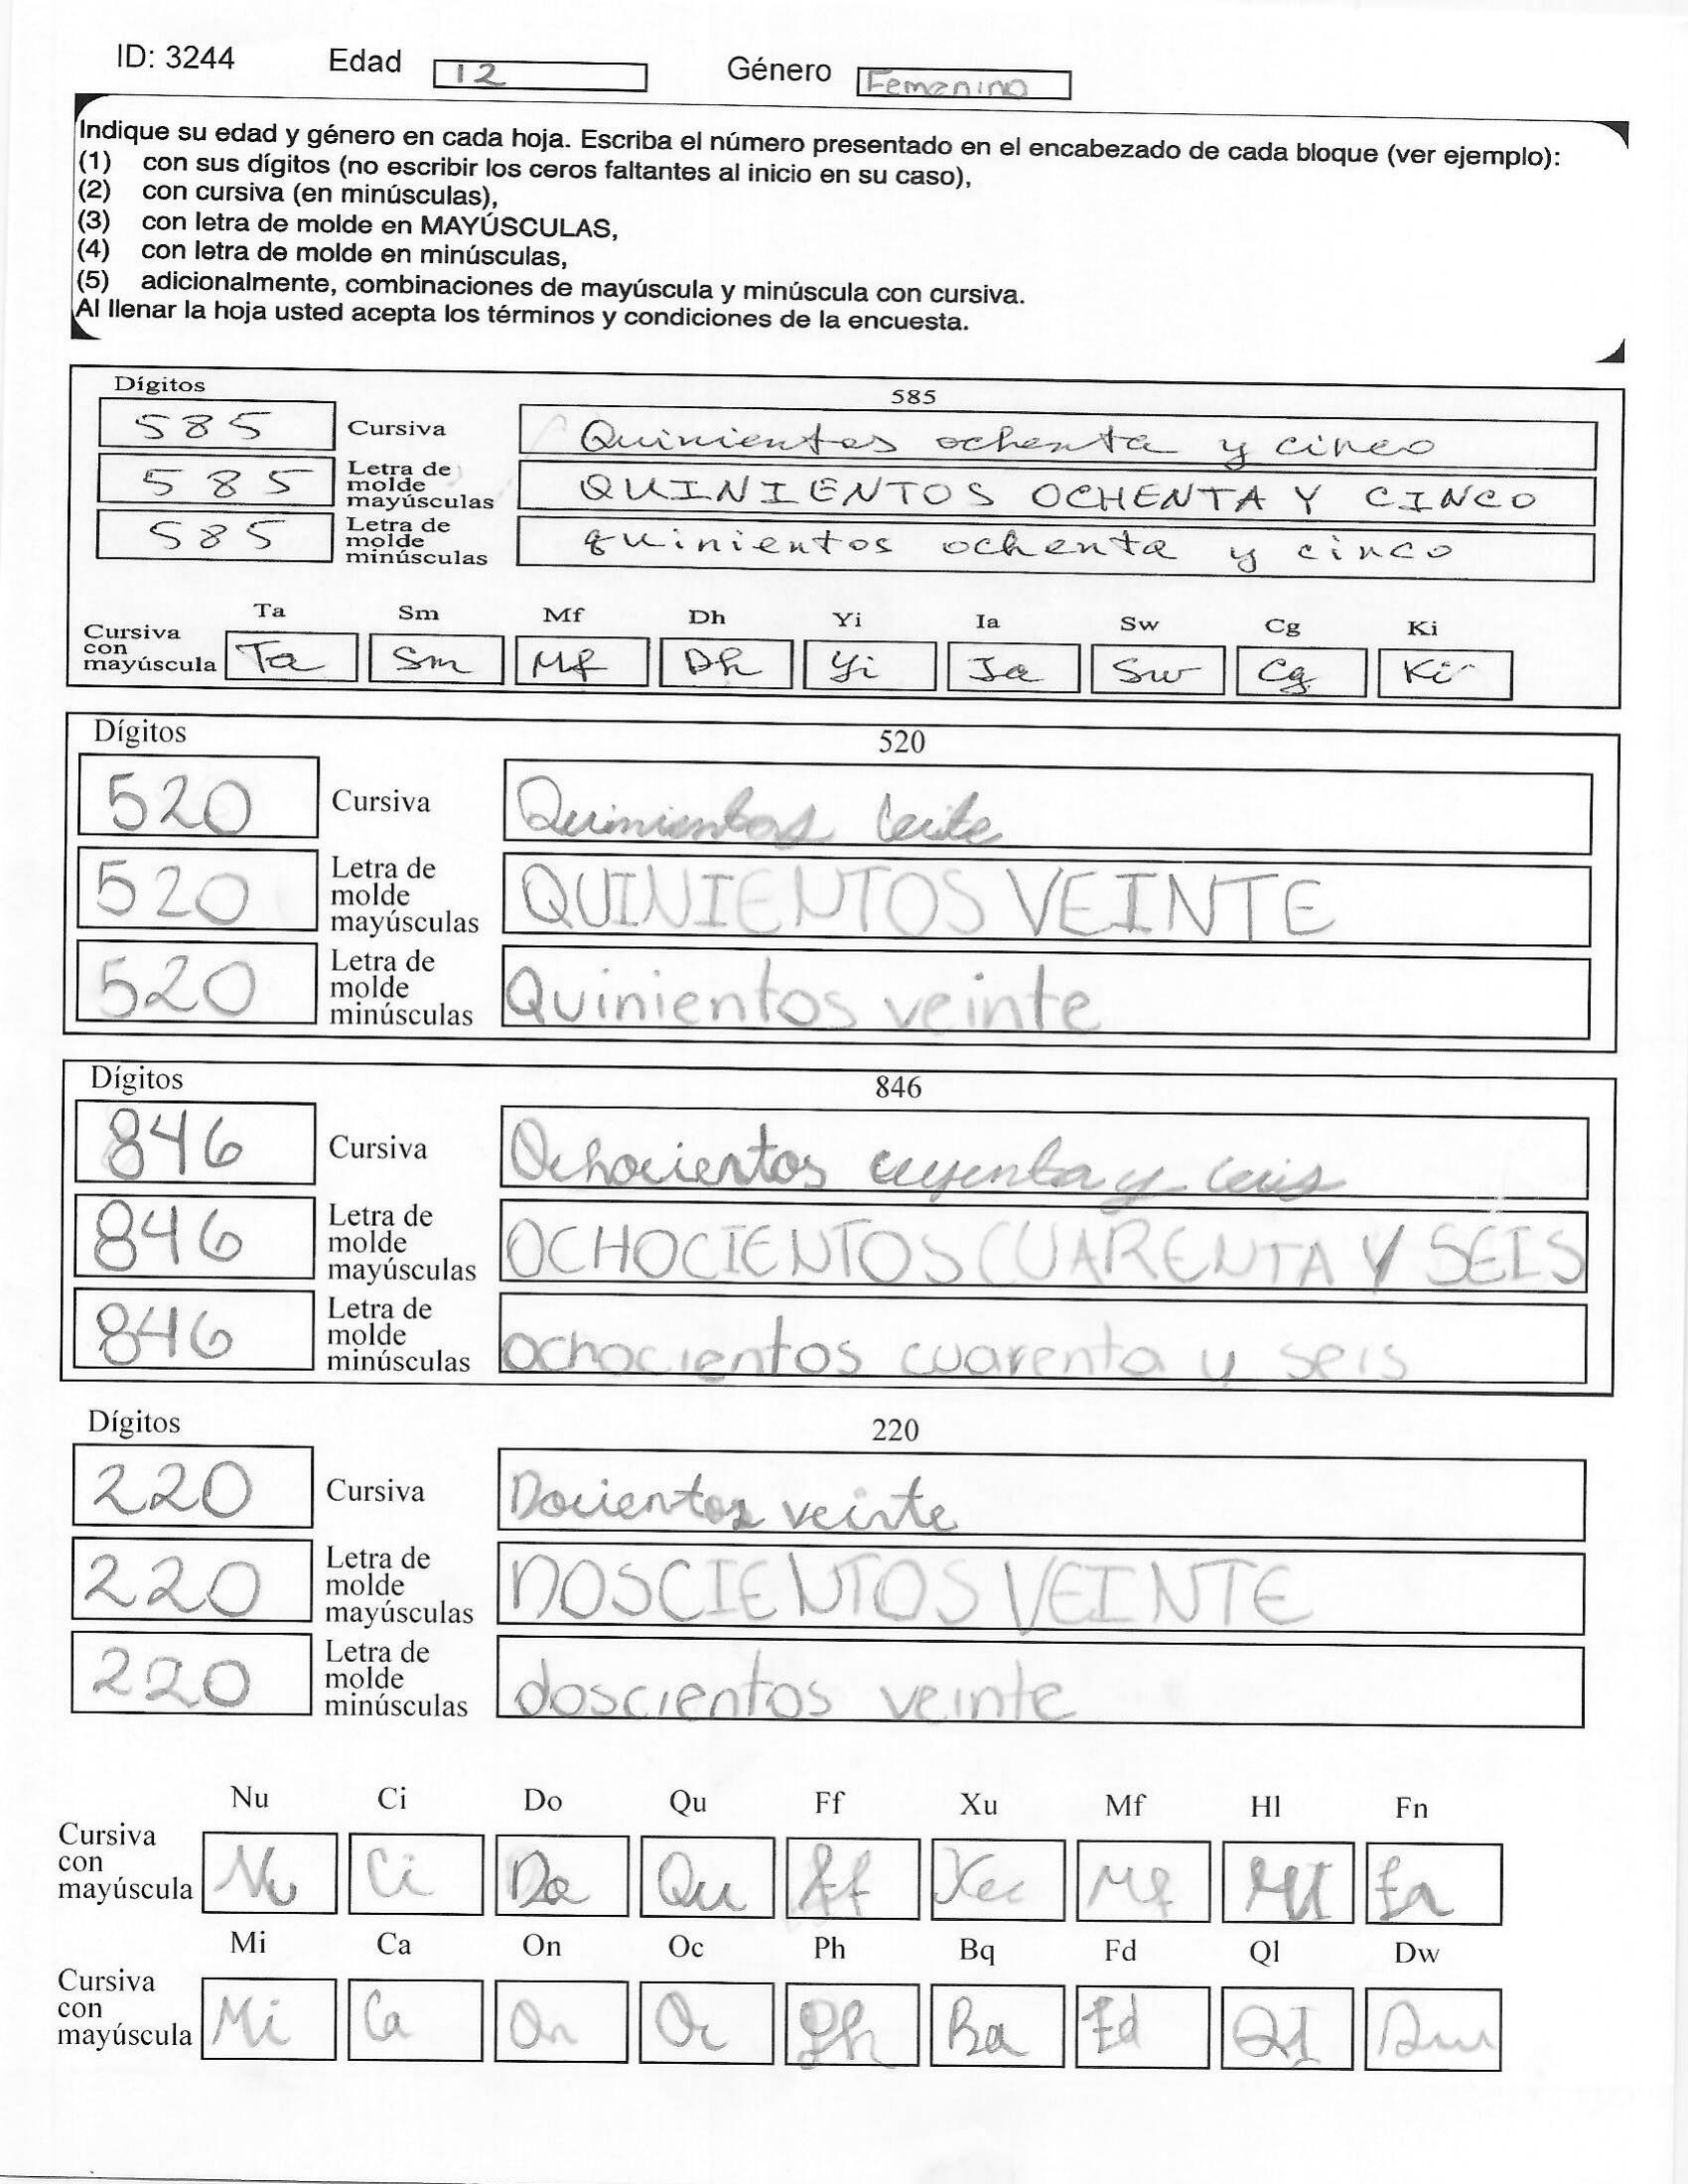 ID: 3244 Edad 12 Género Femenino
Indique su edad y género en cada hoja. Escriba el número presentado en el encabezado de cada bloque (ver ejemplo):
(1) con sus dígitos (no escribir los ceros faltantes al inicio en su caso),
(2) con cursiva (en minúsculas),
(3) con letra de molde en MAYÚSCULAS,
(4) con letra de molde en minúsculas,
(5) adicionalmente, combinaciones de mayúscula y minúscula con cursiva.
Al llenar la hoja usted acepta los términos y condiciones de la encuesta.
Dígitos 585
585 Cursiva Quinientos ochenta y cinco
585 Letra de molde mayúsculas QUINIENTOS OCHENTA Y CINCO
585 Letra de molde minúsculas quinientos ochenta y cinco
Ta Sm Mf Dh Yi Ia Sw Cg Ki
Cursiva con mayúscula Ta Sm Mf Dh Yi Ia Sw Cg Ki
Dígitos 520
520 Cursiva Quinientos
520 Letra de molde mayúsculas QUINIENTOS VEINTE
520 Letra de molde minúsculas Quinientos veinte
Dígitos 846
846 Cursiva Ochocientos y
846 Letra de molde mayúsculas OCHOCIENTOS CUARENTA Y SEIS
846 Letra de molde minúsculas ochocientos cuarenta y seis
Dígitos 220
220 Cursiva Docientos veinte
220 Letra de molde mayúsculas DOSCIENTOS VEINTE
220 Letra de molde minúsculas doscientos veinte
Nu Ci Do Qu Ff Xu Mf Hl Fn
Cursiva con mayúscula Nu Ci Do Qu Ff Xu Mf Fn
Mi Ca On Oc Ph Bq Fd Ql Dw
Cursiva con mayúscula Mi Ca On Oc Ph Ba Fd QI Dw